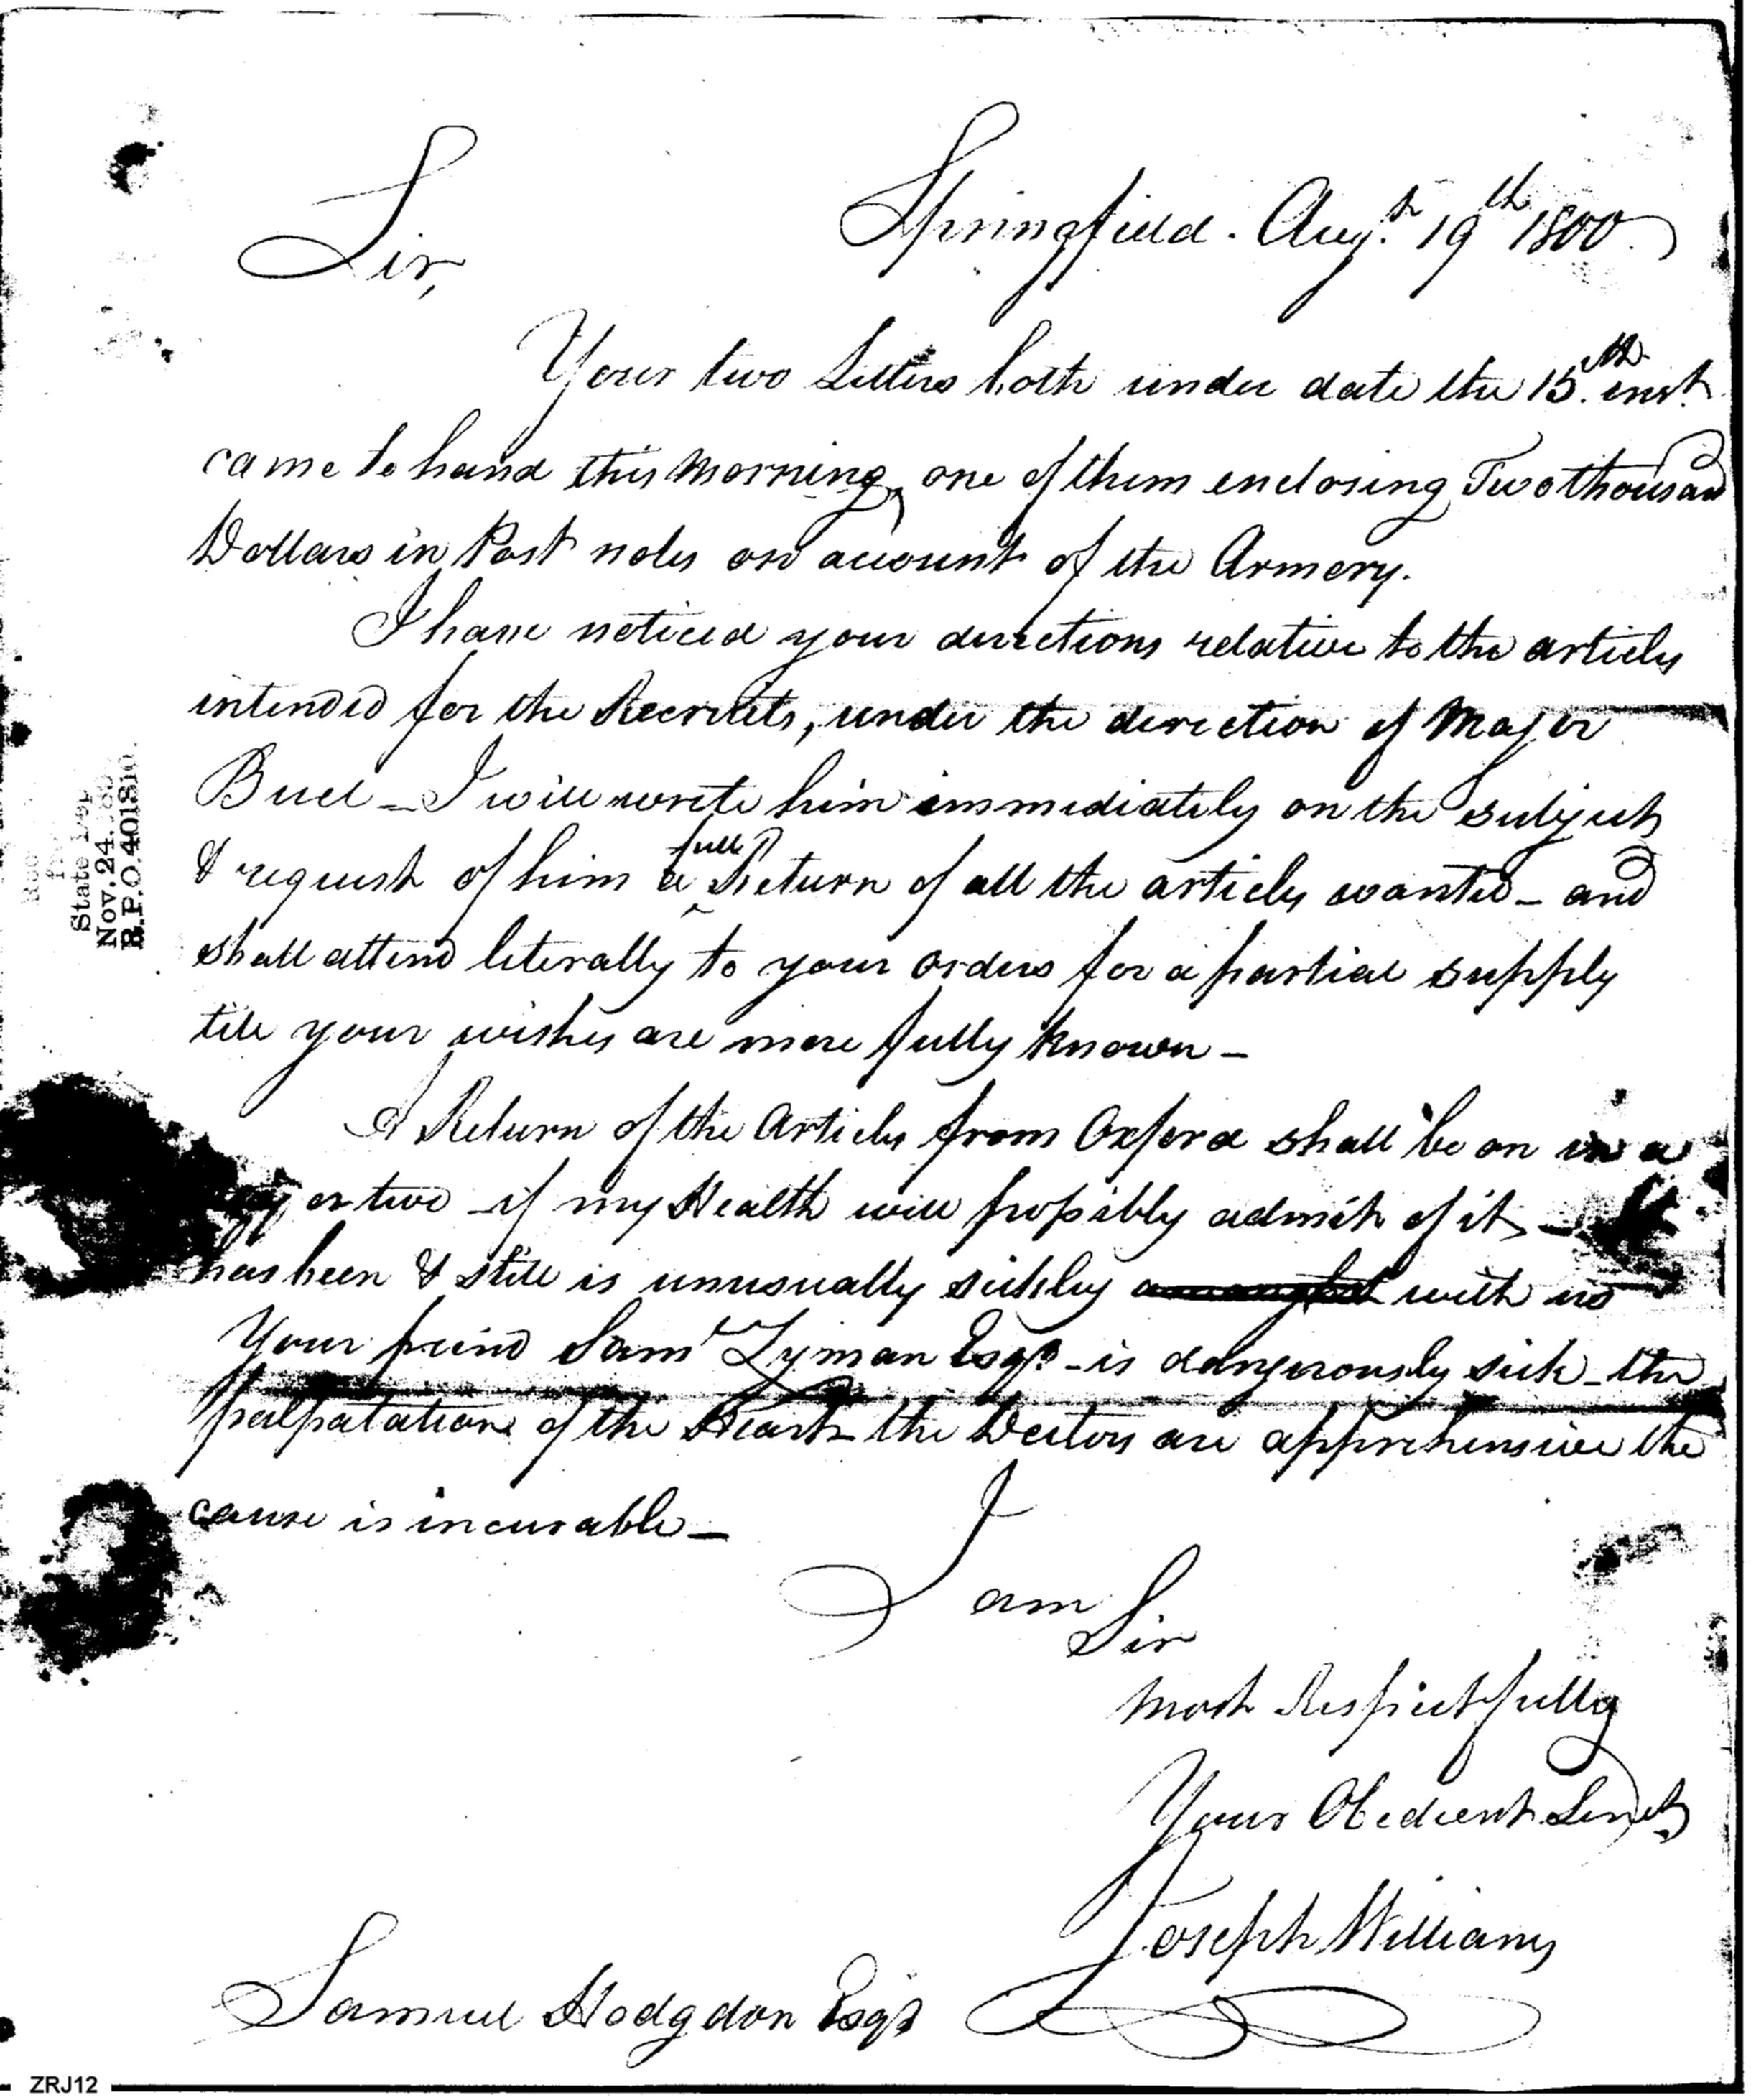 Springfield. Augt. 19th 1800.
Sir,
Your two Letters both under date the 15th. inst.
came to hand this Morning, one of them enclosing Two thousand
Dollars in Post notes on account of the Armory.
I have noticed your directions relative to the articles
intended for the Recruits, under the direction of Major
Buel - I will write him immediately on the subject
& request of him a full Return of all the articles wanted - and
shall attend literally to your orders for a partial supply
till your wishes are more fully known -
A Return of the Articles from Oxford shall be on in a
or two - if my Health will possibly admit of it -
has been & still is unusually sickly with us
Your friend Saml Lyman Esqr. - is dangerously sick - the
palpatation of the Heart - the Doctors are apprehensive the
cause is incurable -
I
am
Sir
most Respectfully
Your Obedient Servt.
Joseph Williams
Samuel Hodgdon Esqr
State Dep
Nov. 24.
R.P.O. 401810.
ZRJ12